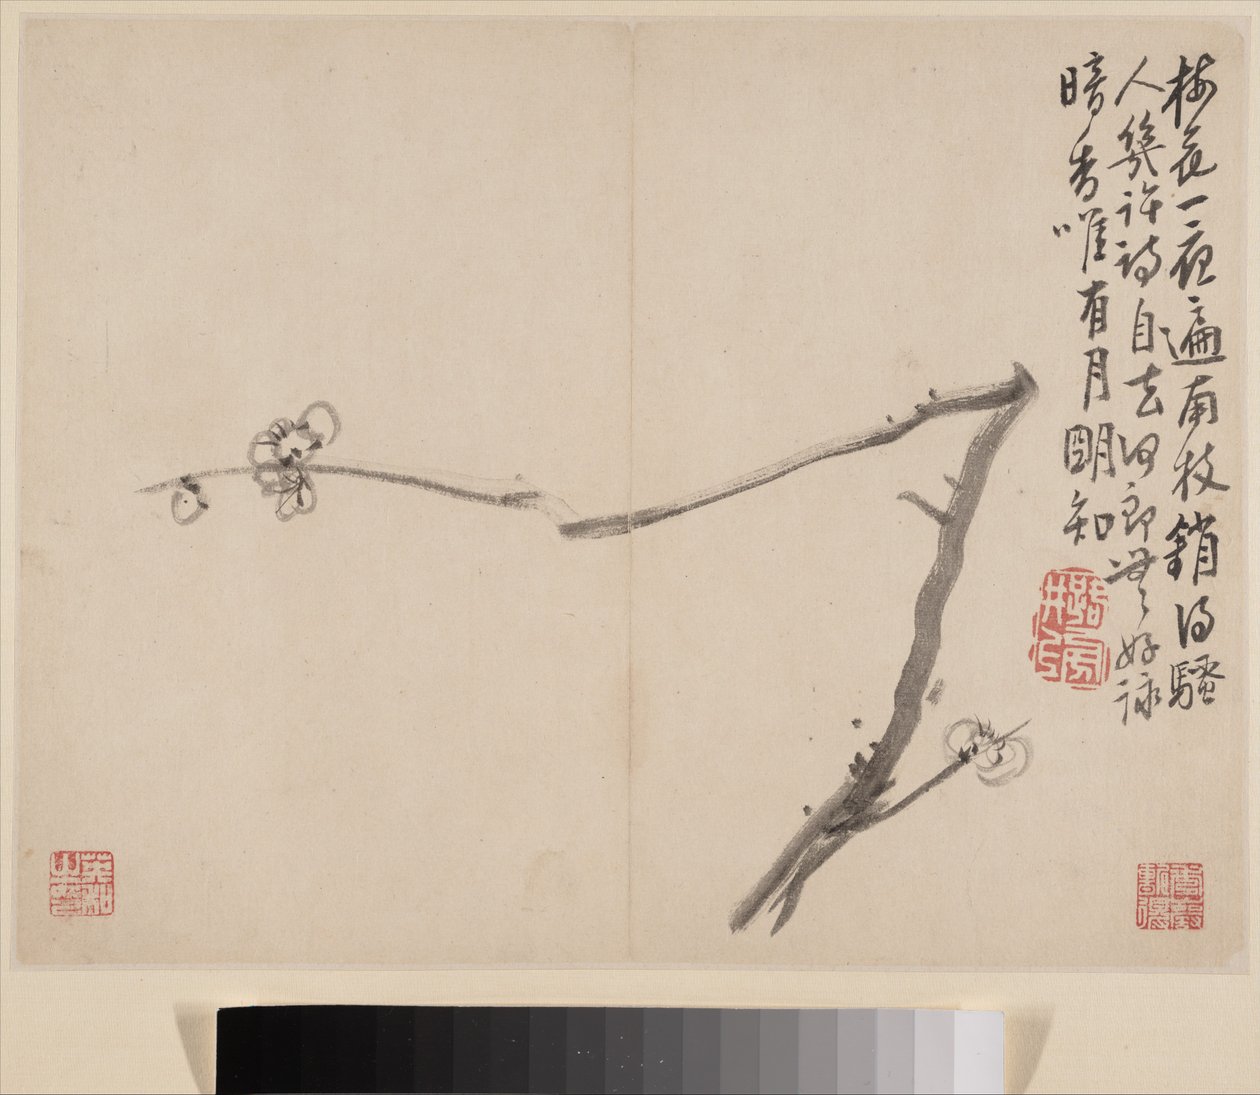 梅花一夜遍南枝銷得騷
人幾許詩自去何郎無好詠
暗香唯有月明知